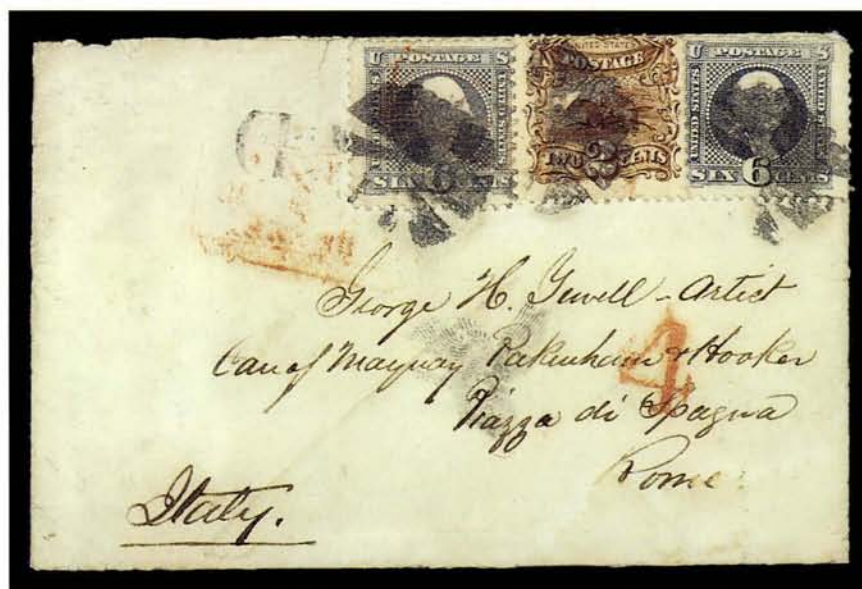 U POSTAGE S
UNITED STATES
SIX 6 CENTS
UNITED STATES
POSTAGE
TWO 2 CENTS
U POSTAGE S
UNITED STATES
UNITED STATES
SIX 6 CENTS
George H. Yewell - Artist
Care of Maquay Pakenham & Hooker
Piazza di Spagna
Rome
Italy.
4